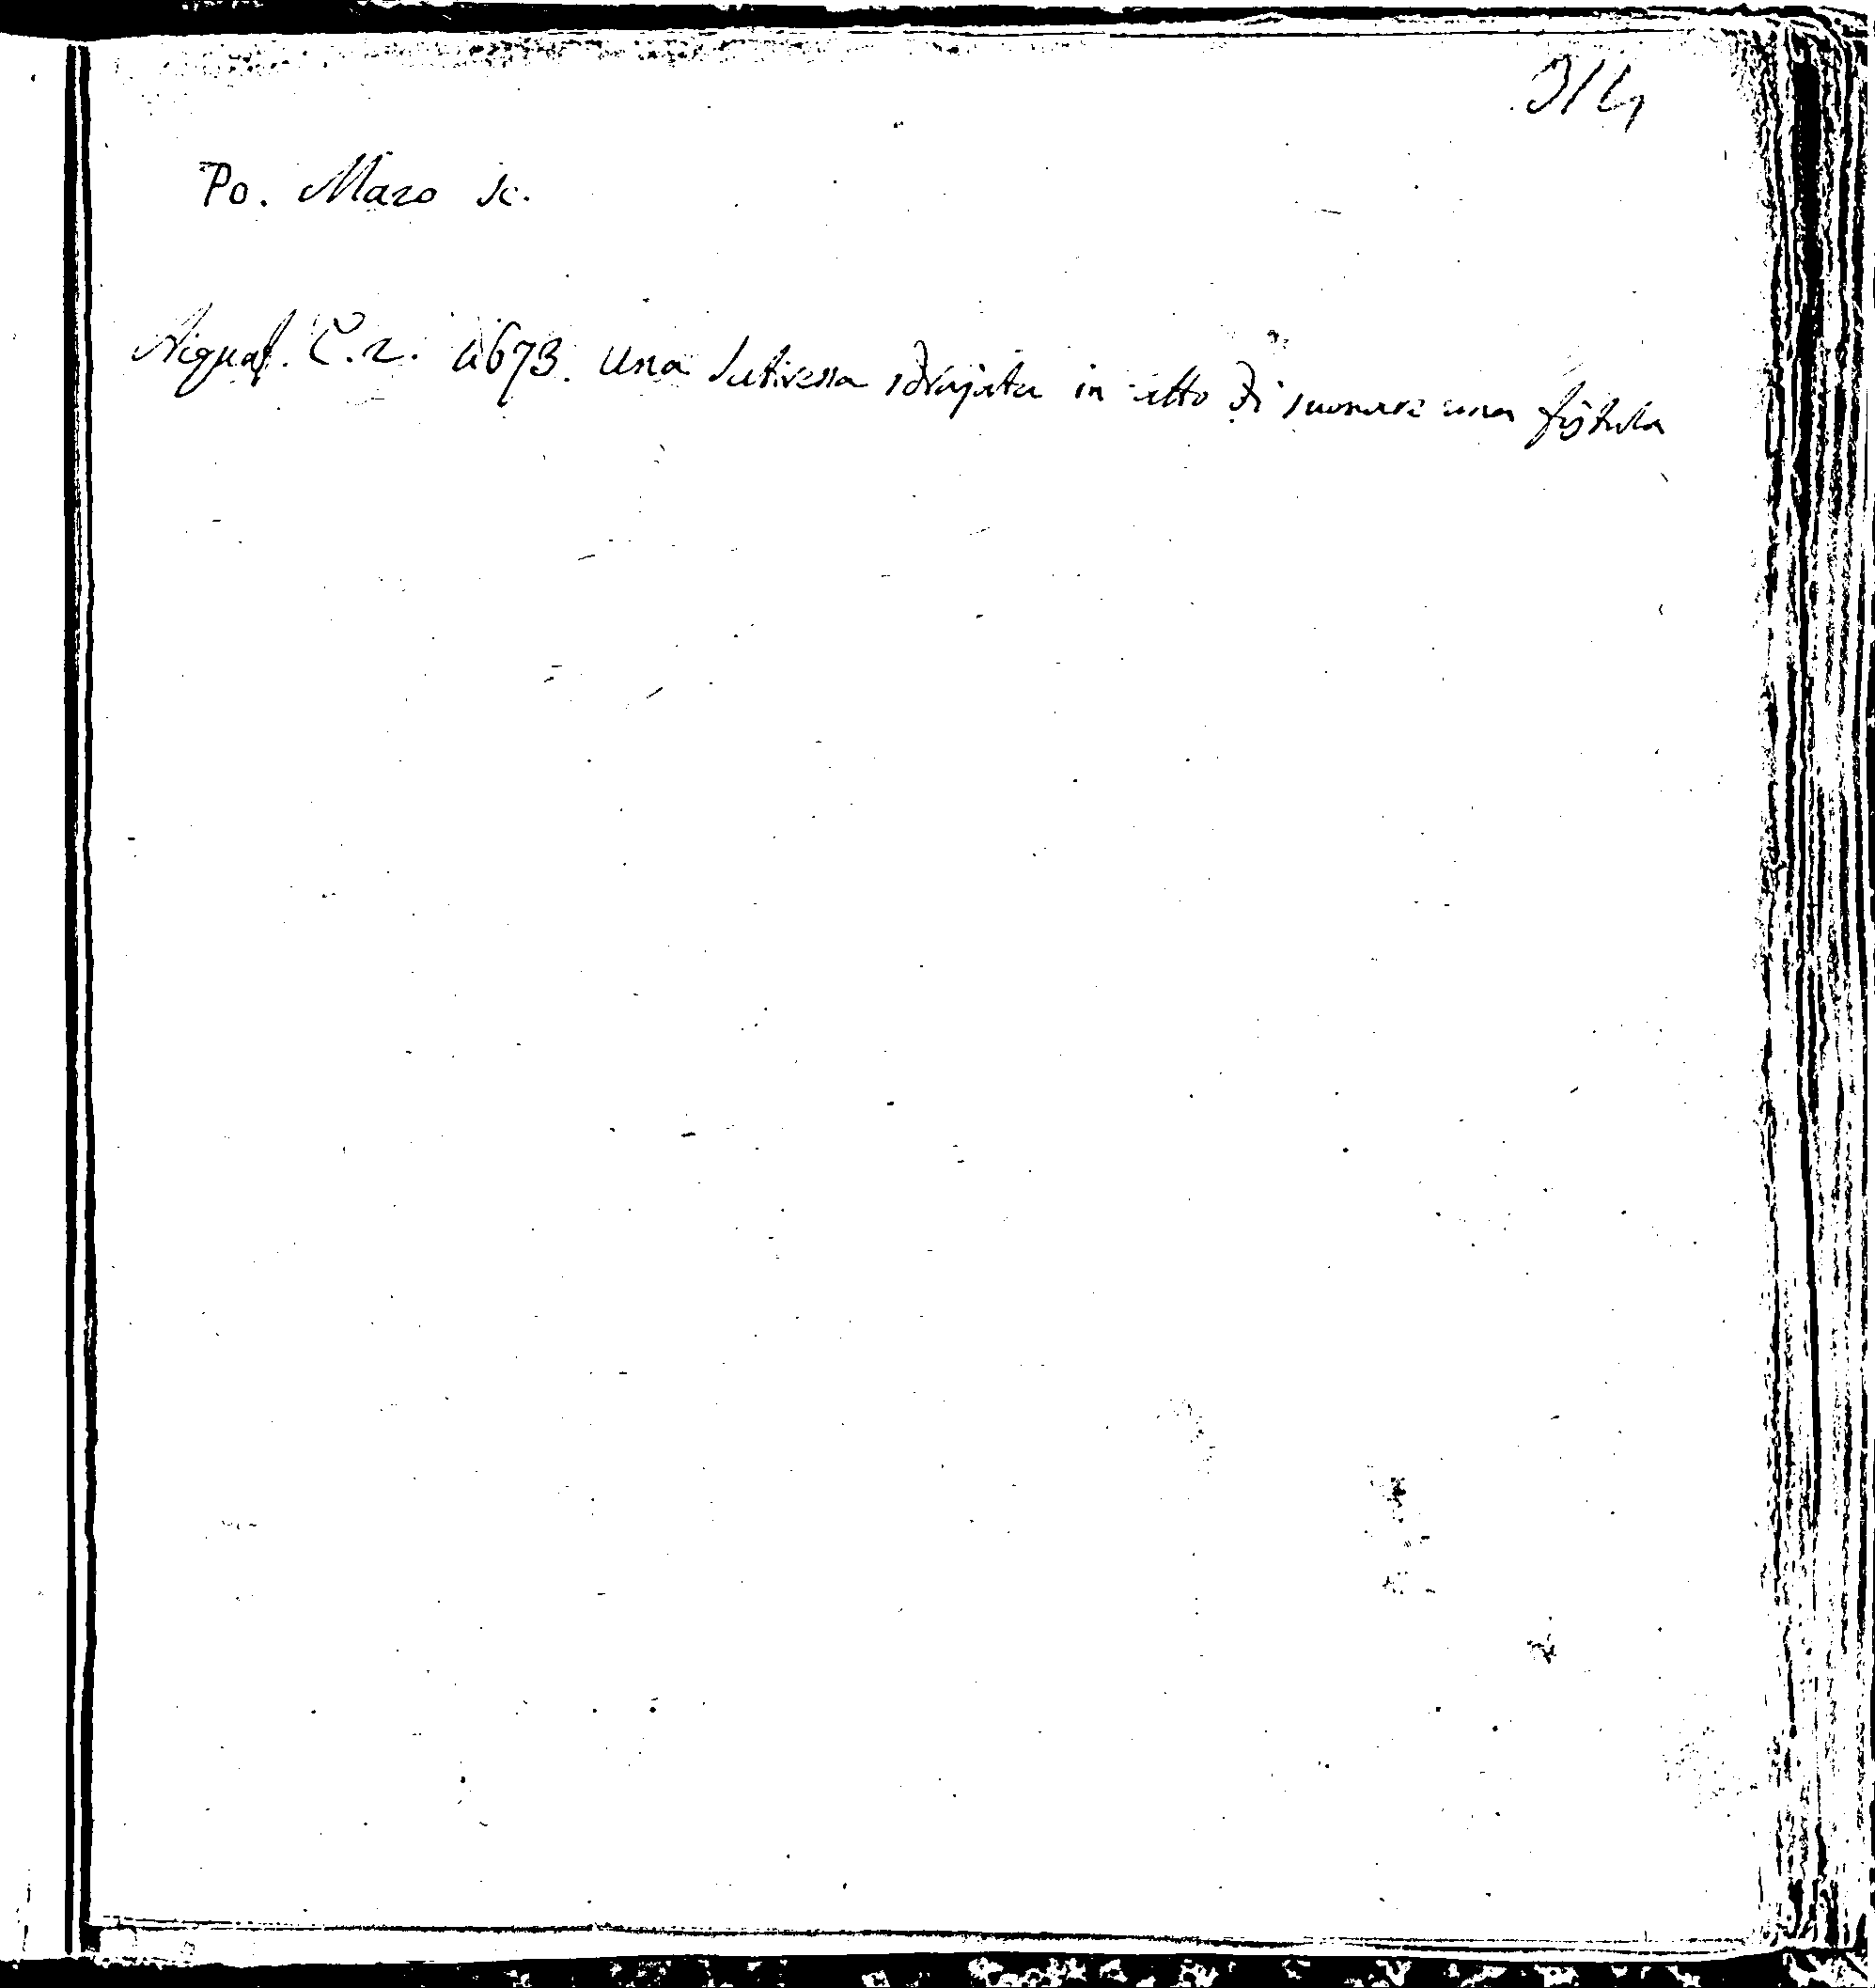 314
Po. Mazo sc.
Acquaf. C. 2. a 673. una Satiressa sdrajata in atto di suonare una fistula